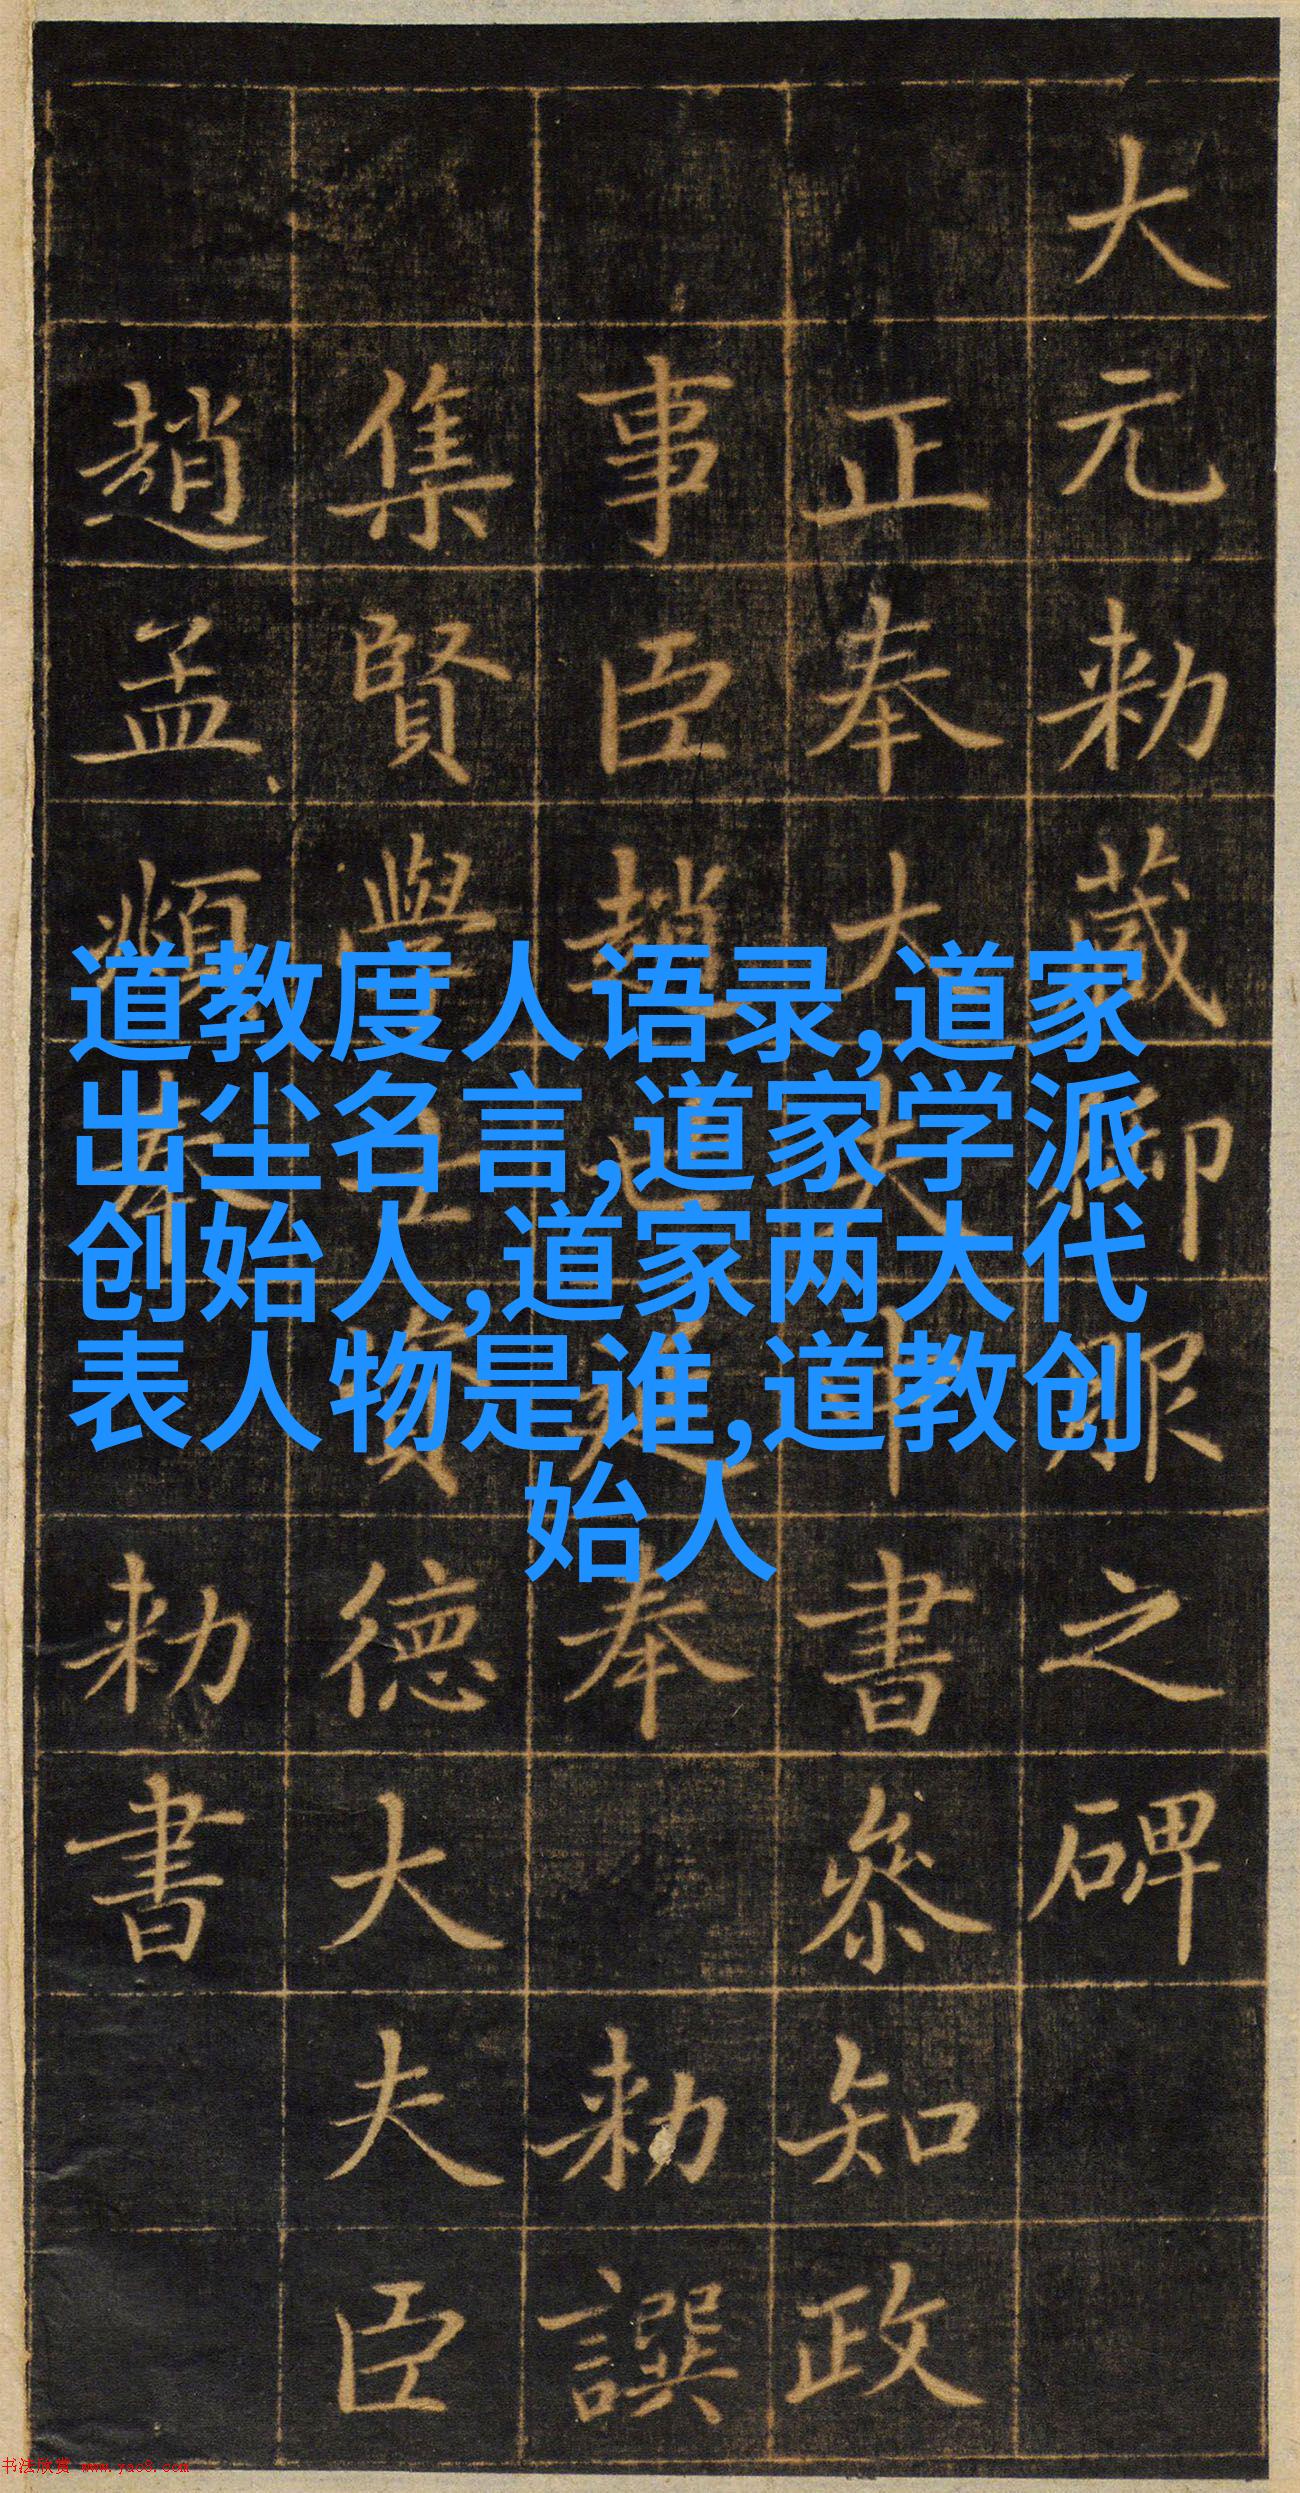 大元勅藏御服之碑
正奉大夫中書叅知政
事臣趙世延奉 勅譔
集賢學士資德大夫臣
趙孟頫奉 勅書
道教度人语录,道家
出尘名言,道家学派
创始人,道家两大代
表人物是谁,道教创
始人
书法欣赏 www.yac8.com